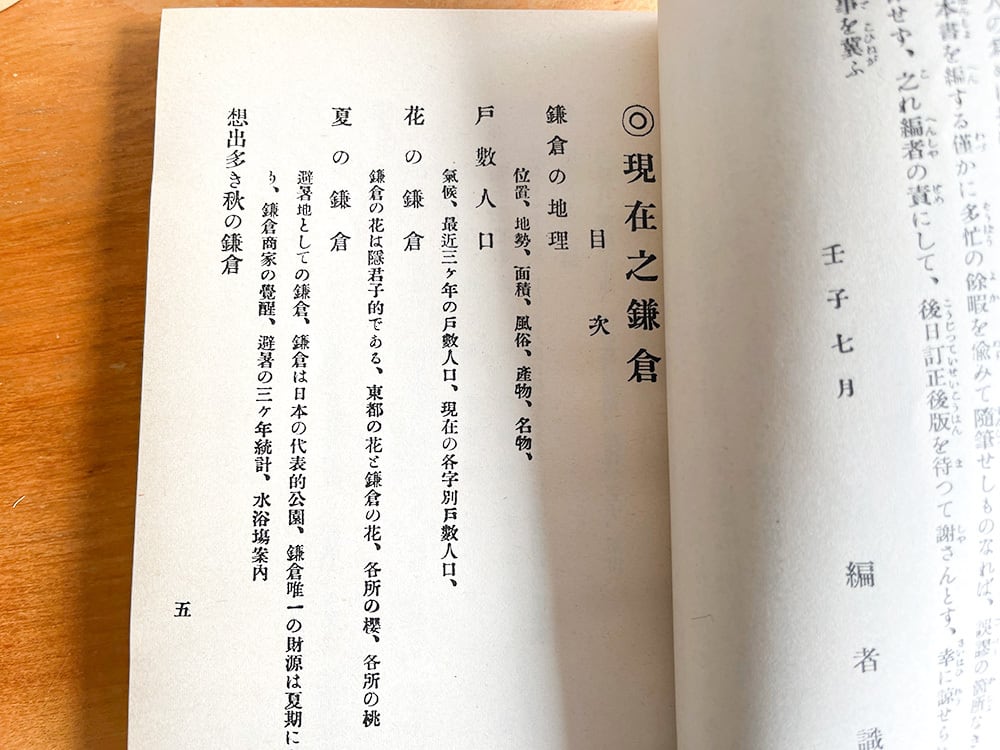 本書を編する僅かに多忙の餘暇を偸みて隨筆せしものなれば、誤謬の箇所なき
せず、之れ編者の責にして、後日訂正後版を待つて謝さんとす、幸に諒せら
事を冀ふ
壬子七月
編者識
◎現在之鎌倉
目次
鎌倉の地理
位置、地勢、面積、風俗、產物、名物、
戸數人口
氣候、最近三ヶ年の戸數人口、現在の各字別戸數人口、
花の鎌倉
鎌倉の花は隱君子的である、東都の花と鎌倉の花、各所の櫻、各所の桃
夏の鎌倉
避暑地としての鎌倉、鎌倉は日本の代表的公園、鎌倉唯一の財源は夏期に
り、鎌倉商家の覺醒、避暑の三ヶ年統計、水浴塲案内
想出多き秋の鎌倉
五